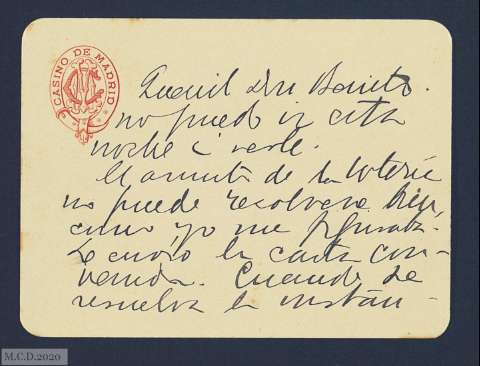 CASINO DE MADRID
Querido Don Benito.
no puedo ir esta
noche á verle.
El asunto de la Lotería
no puede resolverse bien,
como yo me figuraba.
Le envío la carta con-
venida. Cuando se
resuelva la instan-
M.C.D.2020